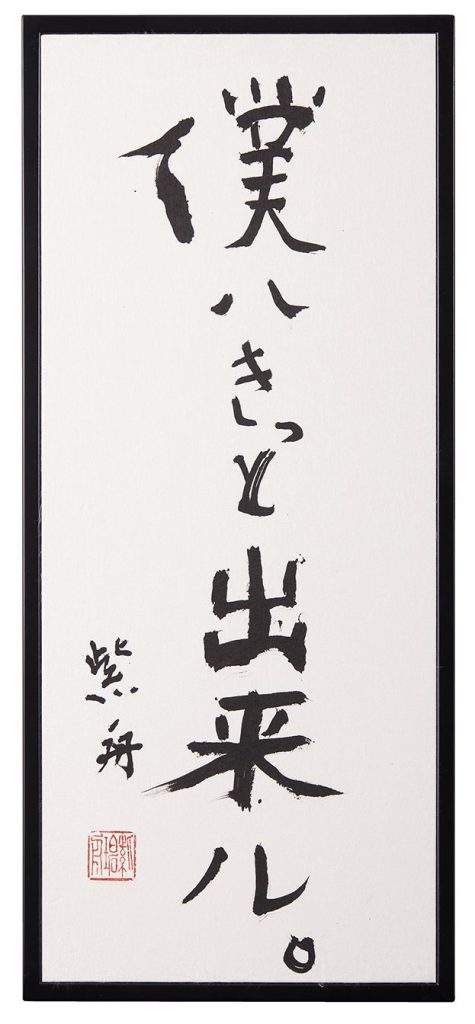 僕ハきっと出来ル。
紫舟